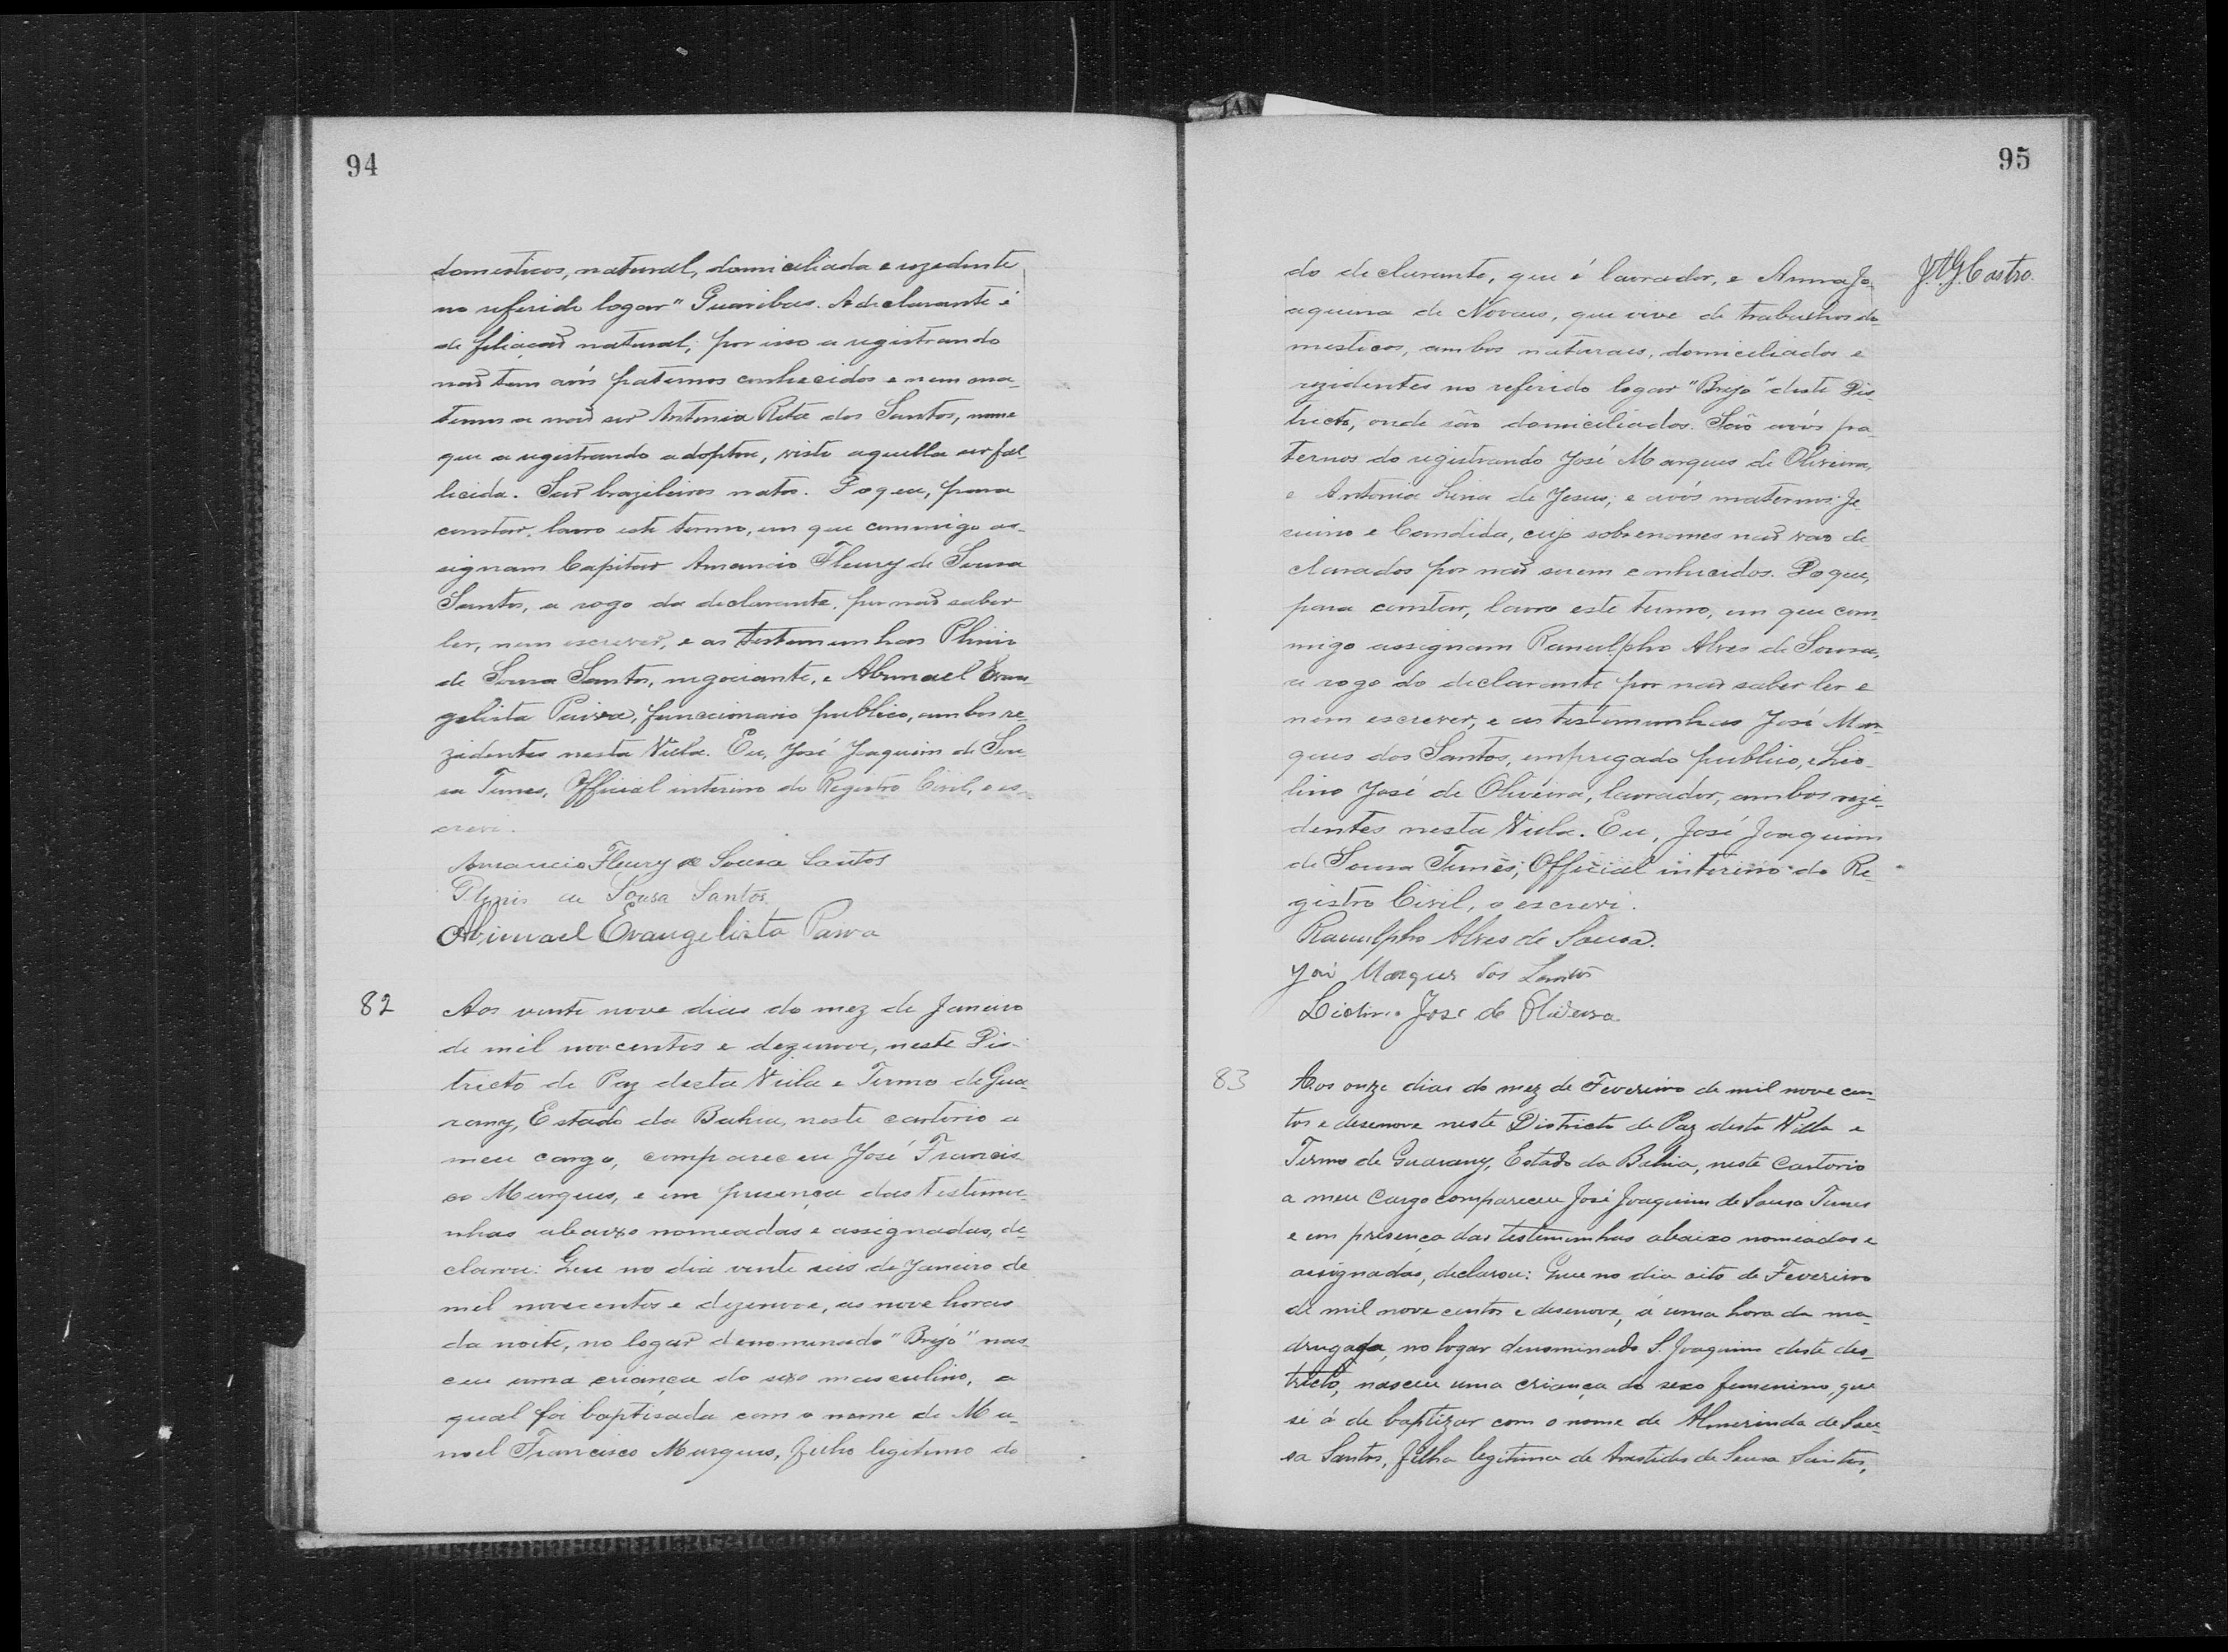 94
domesticos, natural, domiciliada e rezedente
no referido logar "Guaribas. A declarante é
de filiação natural, por isso a registrando
não tem avós paternos conhecidos e nem ma-
ternos a não ser Antonia Rita dos Santos, nome
que a registrando adoptou, visto aquella ser fal-
licida. São brazileiros natos. Do que, para
constar, lavro este termo, em que commigo as-
signam Capitão Amancio Fleury de Sousa
Santos, a rogo da declarante, por não saber
ler, nem escrever, e as testemunhas Plinio
de Sousa Santos, negociante, e Abimael Evan-
gelista Paiva, funccionario publico, ambos re-
zidentes nesta Villa. Eu, José Joaquim de Sou-
sa Tunes, Official interino do Registro Civil, o es-
crevi.
Amancio Fleury de Sousa Santos
Plinio de Sousa Santos
Abimael Evangelista Paiva
82 Aos vinte nove dias do mez de Janeiro
de mil novecentos e dezenove, neste Dis-
tricto de Paz desta Villa e Termo de Gua-
rany, Estado da Bahia, neste cartorio a
meu cargo, compareceu José Francis-
co Marques, e em presença das testemu-
nhas abaixo nomeadas e assignadas, de-
clarou: Que no dia vinte seis de Janeiro de
mil novecentos e dezenove, as nove horas
da noite, no logar denominado "Brejo" nas-
ceu uma criança do sexo masculino, a
qual foi baptisada com o nome de Ma-
noel Francisco Marques, filho legitimo do
95
J.A.G. Castro.
do declarante, que é lavrador, e Anna Jo-
aquina de Novaes, que vive de trabalhos do-
mesticos, ambos naturaes, domiciliados e
rezidentes no referido logar "Brejo" deste Dis-
tricto, onde são domiciliados. São avós pa-
ternos do registrando José Marques de Oliveira,
e Antonia Lina de Jesus; e avós maternos: Je-
suino e Candida, cujo sobrenomes não vao de-
clarados por não serem conhecidos. Do que,
para constar, lavro este termo, em que com-
migo assignam Ranulpho Alves de Sousa,
a rogo do declarante por não saber ler e
nem escrever, e as testemunhas José Mar-
ques dos Santos, empregado publico, e Lio-
lino José de Oliveira, lavrador, ambos rezi-
dentes nesta Villa. Eu, José Joaquim
de Sousa Tunes, Official interino do Re-
gistro Civil, o escrevi.
Ranulpho Alves de Sousa.
José Marques dos Santos
José de Oliveira
83 Aos onze dias do mez de Fevereiro de mil nove cen-
tos e desenove neste Districto de Paz desta Villa e
Termo de Guarany, Estado da Bahia, neste Cartorio
a meu Cargo compareceu José Joaquim de Sousa Tunes
e em presença das testemunhas abaixo nomeados e
assignadas, declarou: Que no dia oito de Fevereiro
de mil nove centos e desenove, á uma hora da ma-
drugada, no logar denominado S. Joaquim deste des-
tricto, nasceu uma criança do sexo femenino, que
se á de baptizar com o nome de Almerinda de Sou-
sa Santos, filha legitima de Aristides de Sousa Santos,